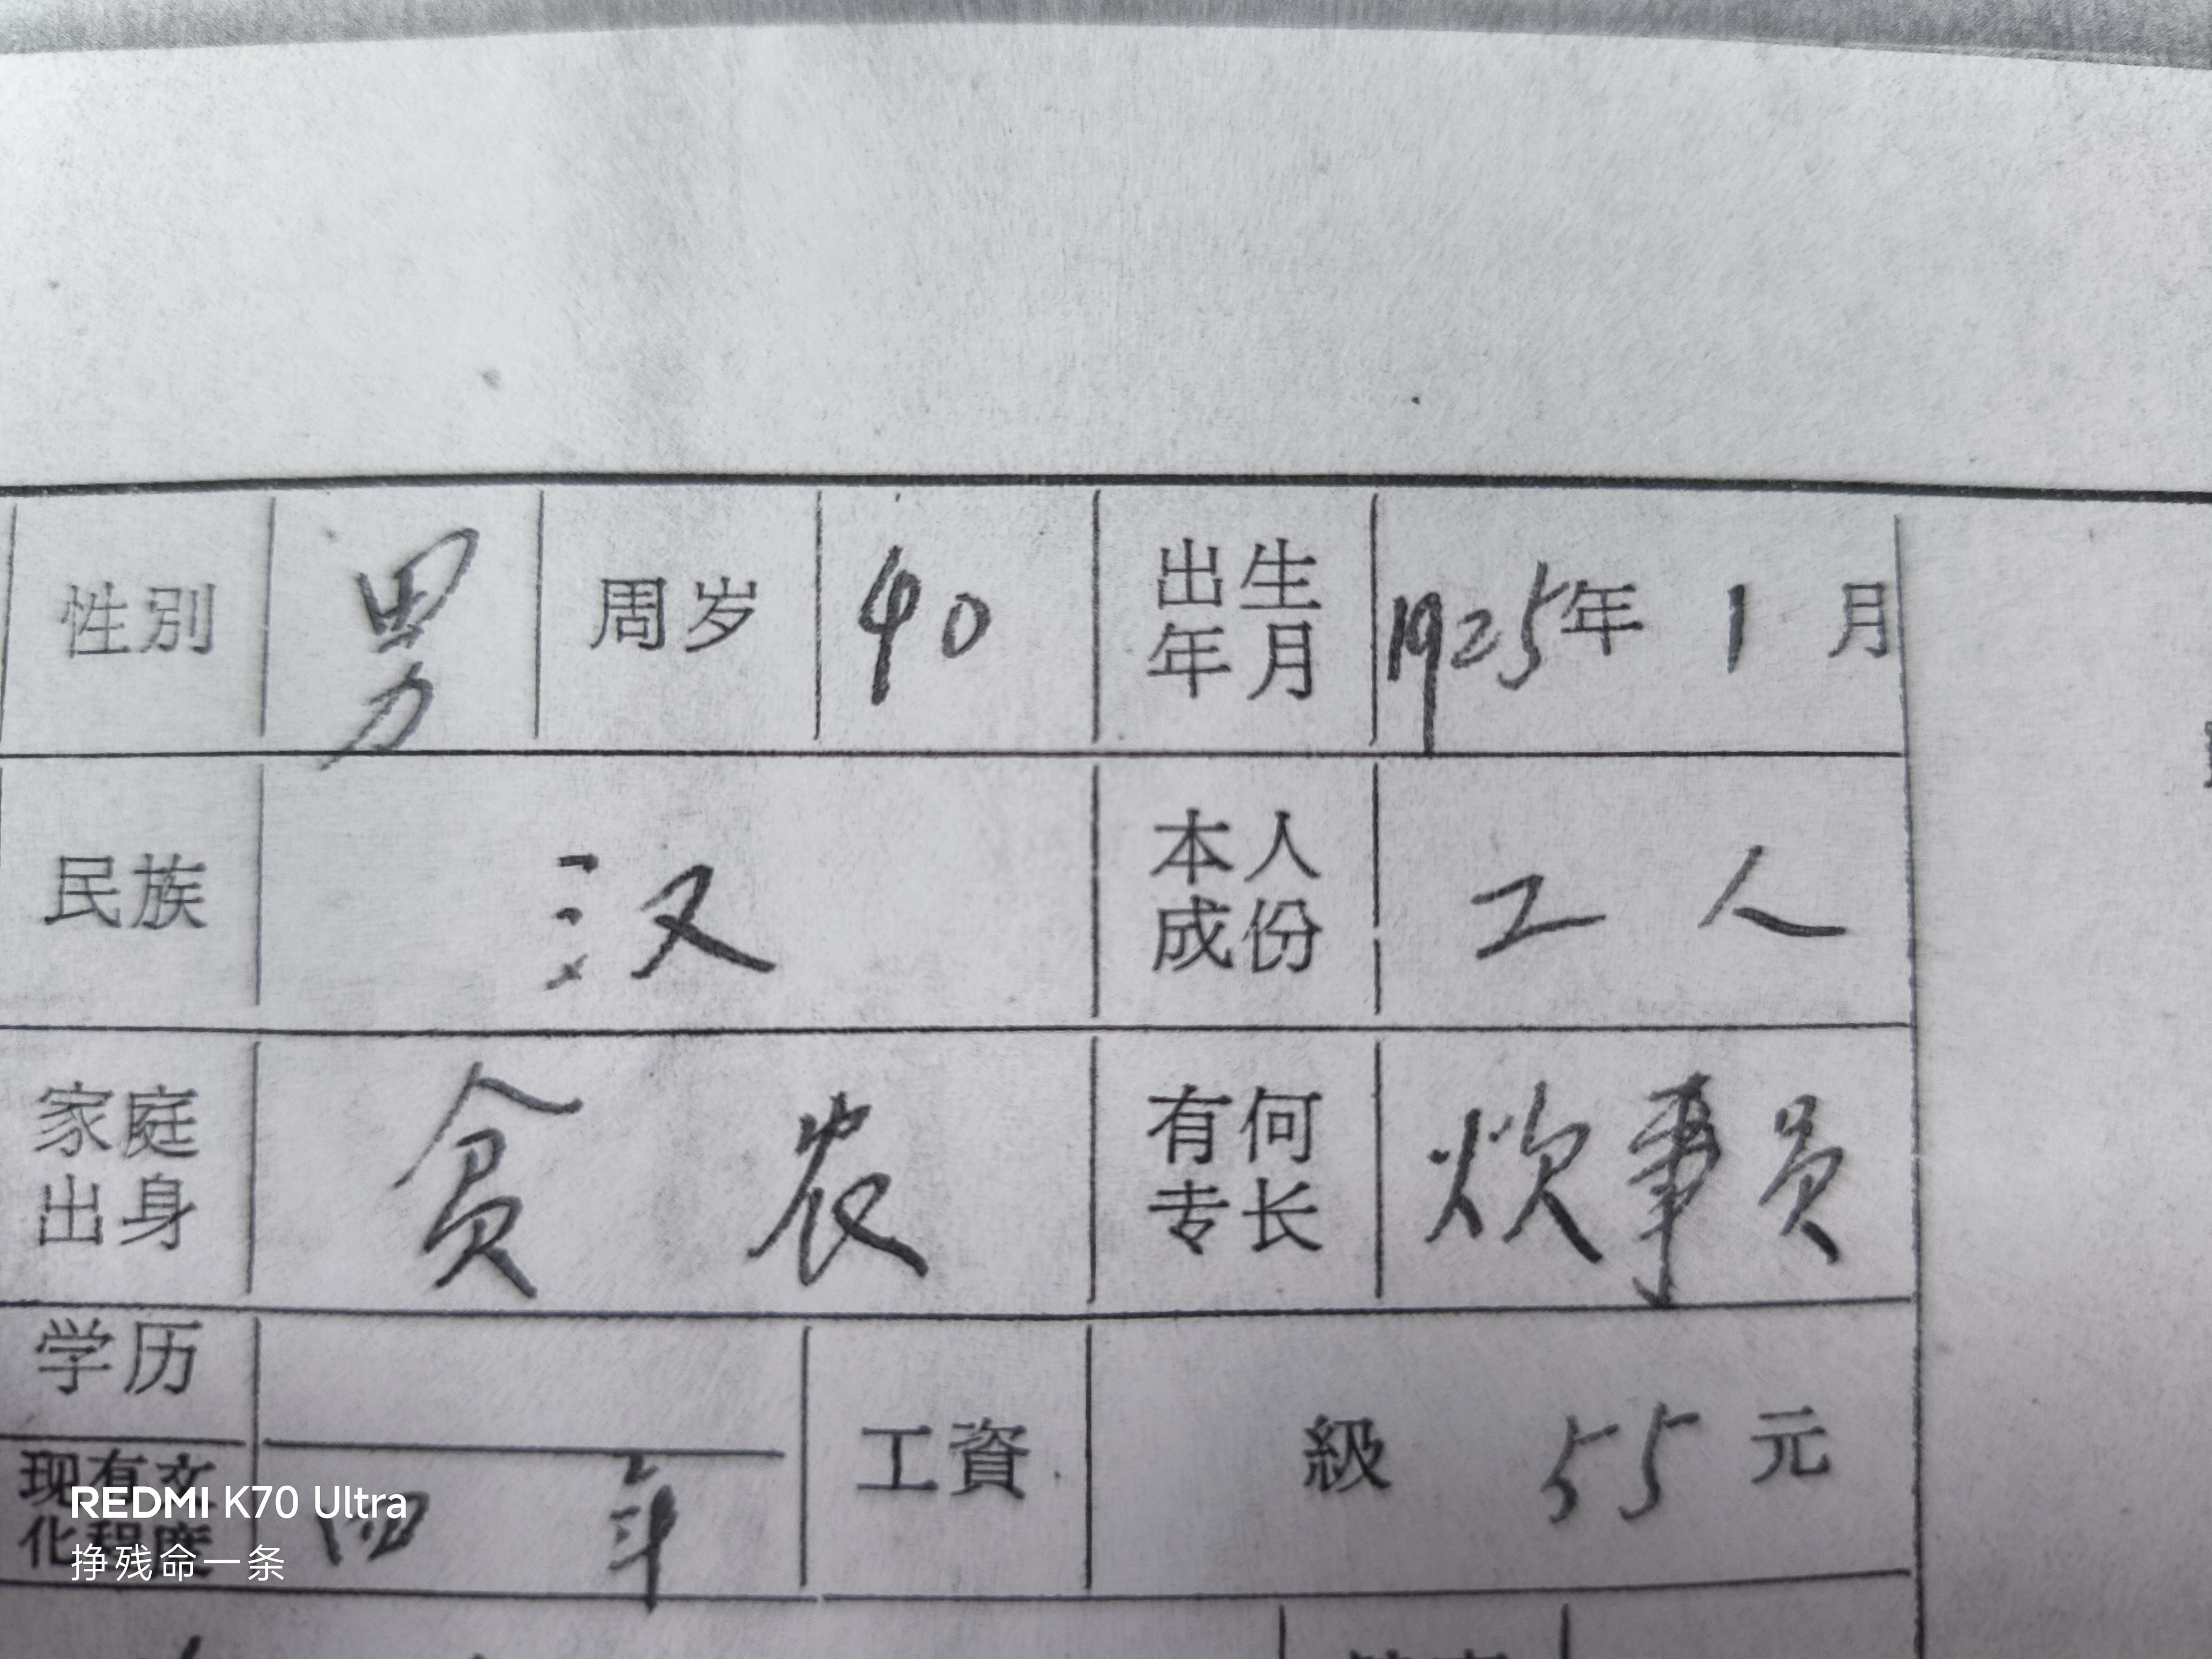 性別 男 周岁 40 出生年月 1925年 1 月
民族 汉 本人成份 工人
家庭出身 贫农 有何专长 炊事员
学历
现有文化程度 四年 工資 級 55 元
REDMI K70 Ultra
挣残命一条